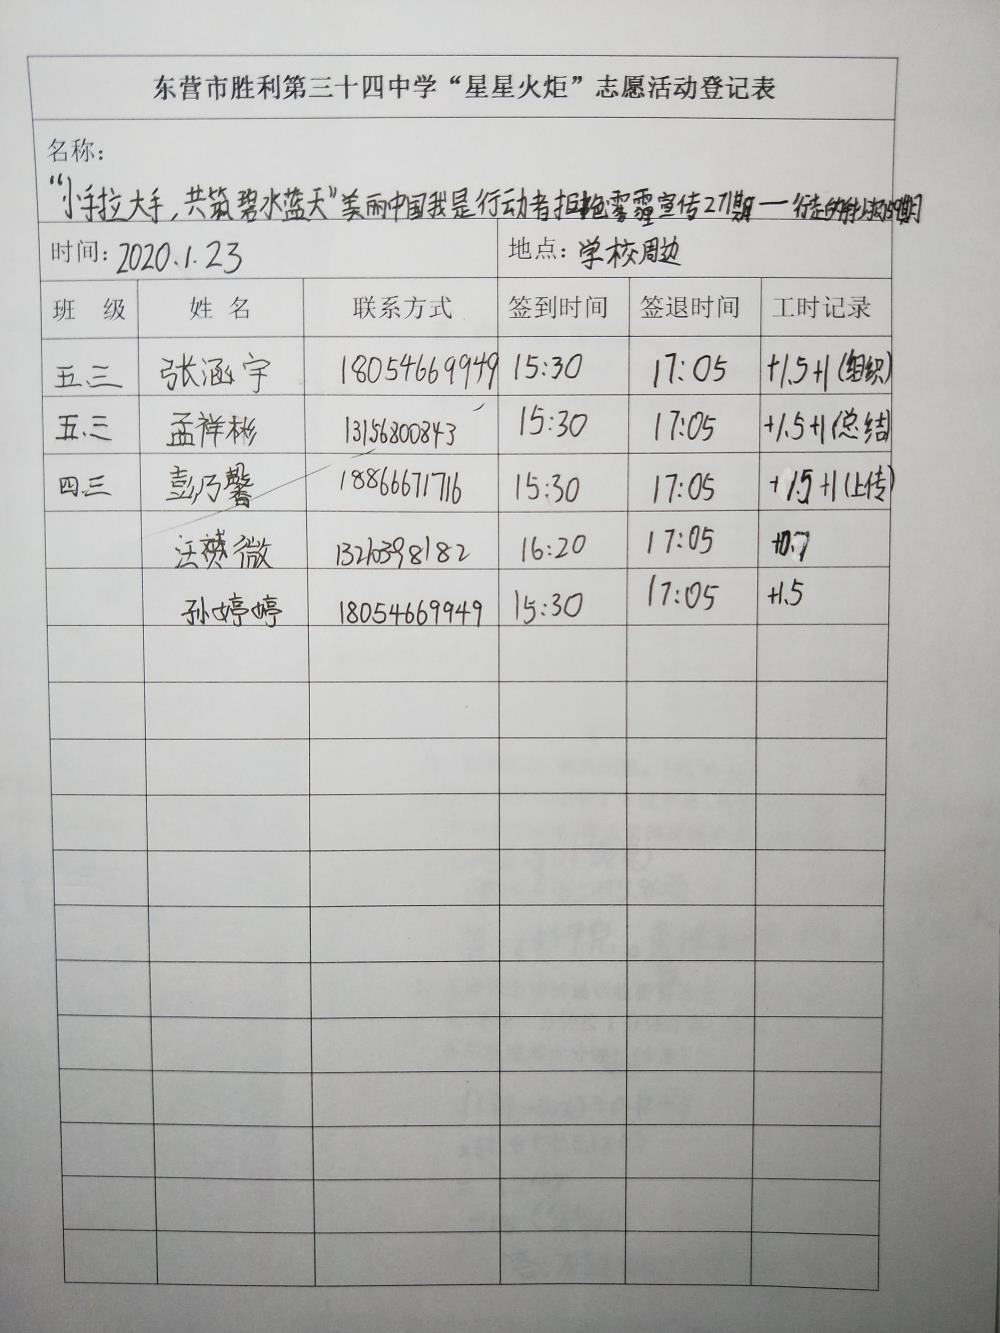 东营市胜利第三十四中学“星星火炬”志愿活动登记表
名称：
“小手拉大手，共筑碧水蓝天”美丽中国我是行动者拒绝雾霾宣传271期——行走的
时间：2020.1.23 地点：学校周边
班 级 姓 名 联系方式 签到时间 签退时间 工时记录
五.三 张涵宇 18054669949 15:30 17:05 +1.5+1(组织)
五.三 孟祥彬 13156800843 15:30 17:05 +1.5+1(总结)
四.三 彭乃馨 18866671716 15:30 17:05 +1.5+1(上传)
汪 微 13210398182 16:20 17:05 +0.7
孙婷婷 18054669949 15:30 17:05 +1.5